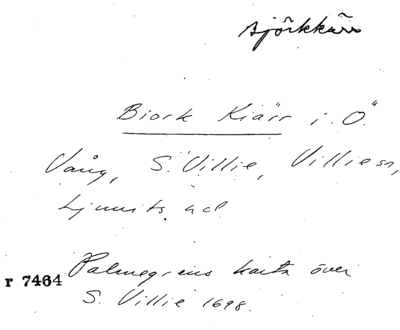 Björkkärr
Biork Kiärr i Ö.
Vång, S. Villie, Villie sn,
Ljunits hd
Palmgrens karta över
r 7464
S. Villie 1698.